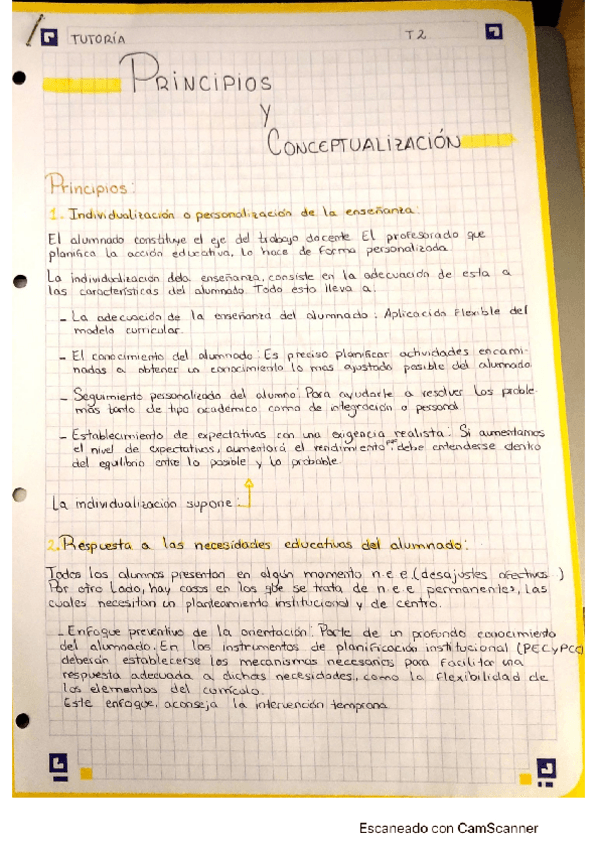 TUTORÍA T2
PRINCIPIOS
Y
CONCEPTUALIZACIÓN
Principios:
1. Individualización o personalización de la enseñanza:
El alumnado constituye el eje del trabajo docente El profesorado que
planifica la acción educativa, lo hace de forma personalizada
La individualización dela enseñanza, consiste en la adecuación de esta a
las características del alumnado Todo esto lleva a:
- La adecuación de la enseñanza del alumnado: Aplicación flexible del
modelo curricular.
- El conocimiento del alumnado: Es preciso planificar actividades encami-
nadas a obtener un conocimiento lo mas ajustado posible del alumnado
- Seguimiento personalizado del alumno: Para ayudarle a resolver los proble-
mas tanto de tipo académico como de integración o personal
- Establecimiento de expectativas con una exigencia realista: Si aumentamos
el nivel de expectativas, aumentará el rendimiento debe entenderse dentro
del equilibrio entre lo posible y lo probable.
La individualización supone:
2. Respuesta a las necesidades educativas del alumnado:
Todos los alumnos presentan en algún momento n.e.e (desajustes afectivos )
Por otro lado, hay casos en los que se trata de n.e.e permanentes, las
cuales necesitan un planteamiento institucional y de centro.
- Enfoque preventivo de la orientación: Parte de un profundo conocimiento
del alumnado. En los instrumentos de planificación institucional (PEC y PCC)
deberán establecerse los mecanismos necesarios para facilitar una
respuesta adecuada a dichas necesidades, como la flexibilidad de
los elementos del currículo.
Este enfoque, aconseja la intervención temprana
Escaneado con CamScanner